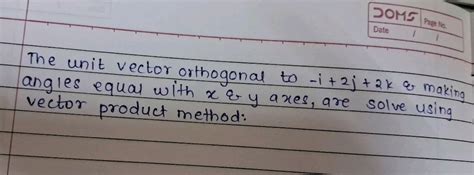 DOMS
Page No.
Date / /
The unit vector orthogonal to -i+2j+2k & making
angles equal with x & y axes, are solve using
vector product method: